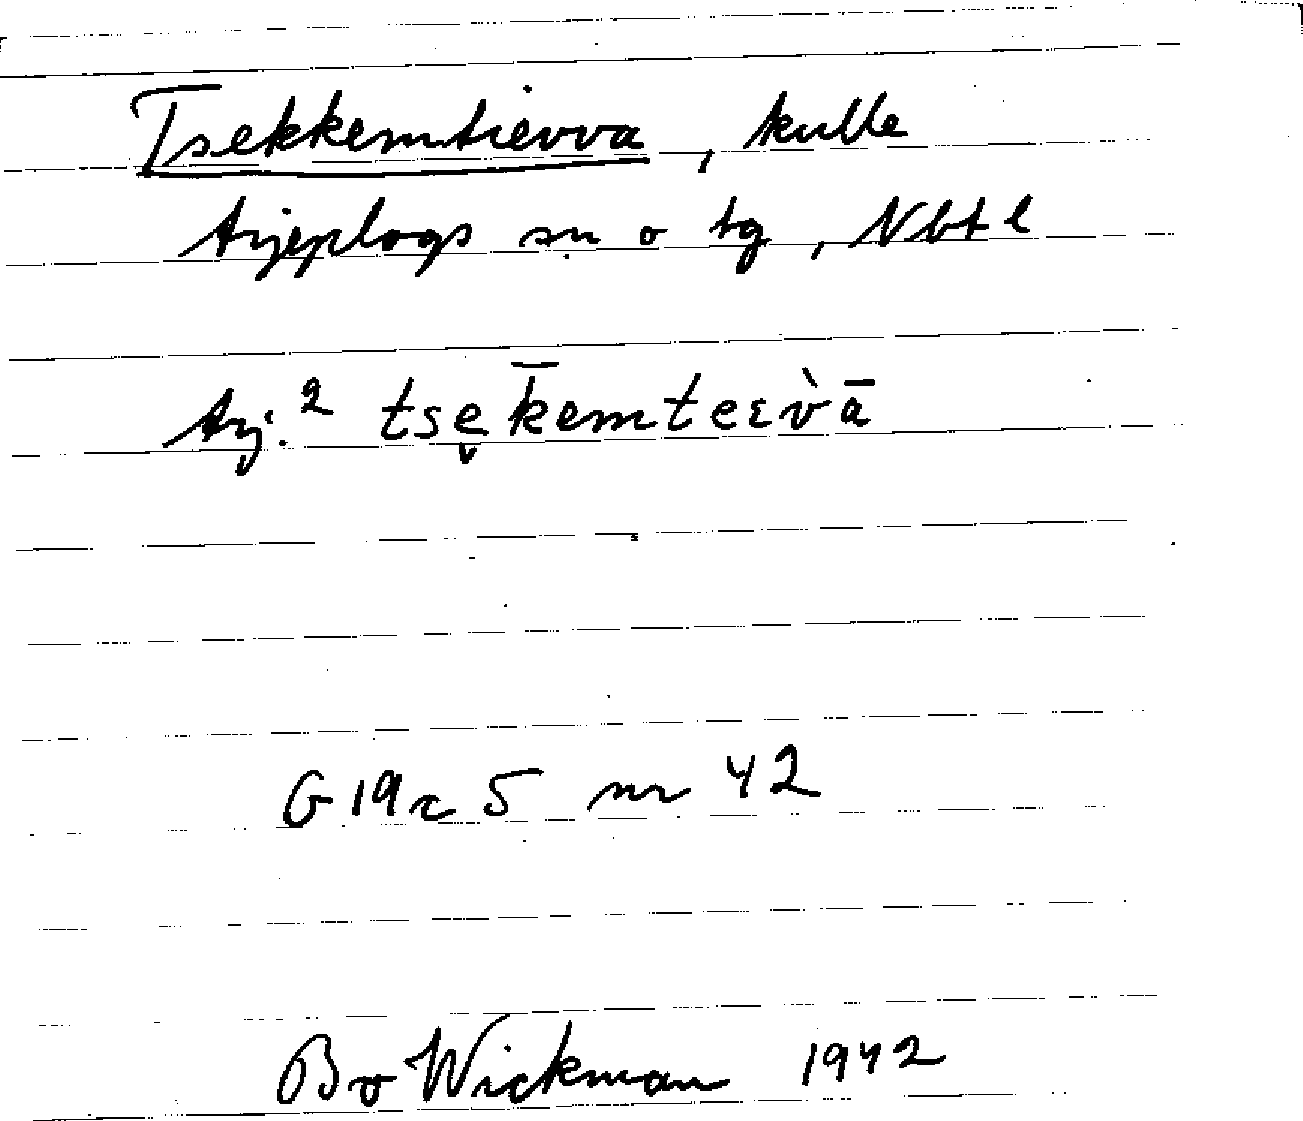 Tsekkemtievva, kulle
Arjeplogs sn o tg, Nbtl
Arj.² tsę̬k̄emteεv̀ā
G19c 5 nr 42
Bo Wickman 1942